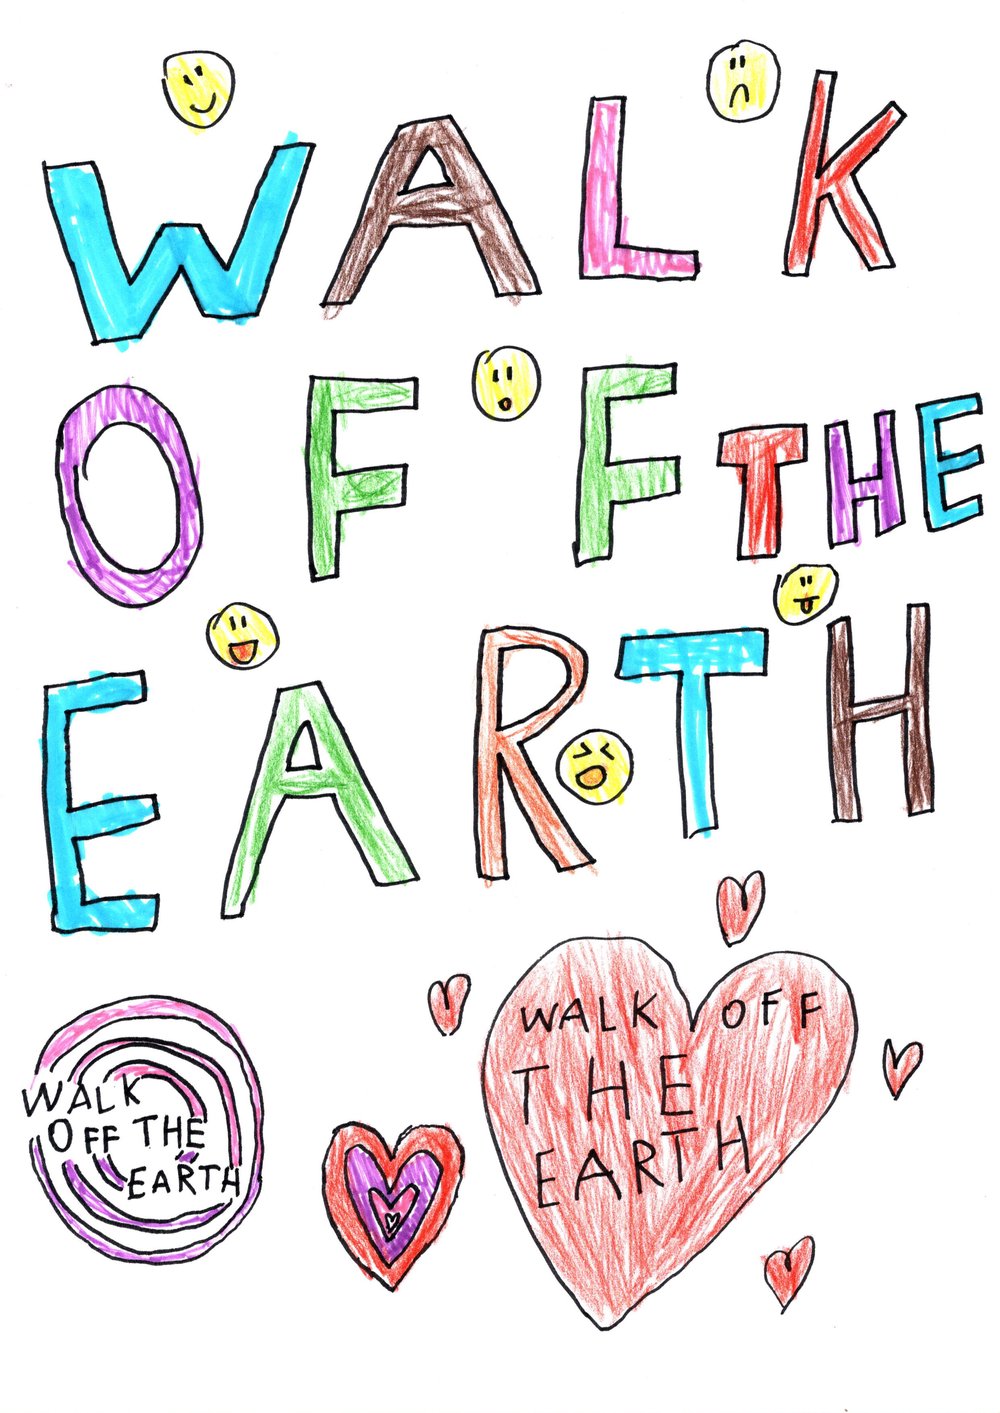 WALK
OFF THE
EARTH
WALK
OFF THE
EARTH
WALK OFF
THE
EARTH